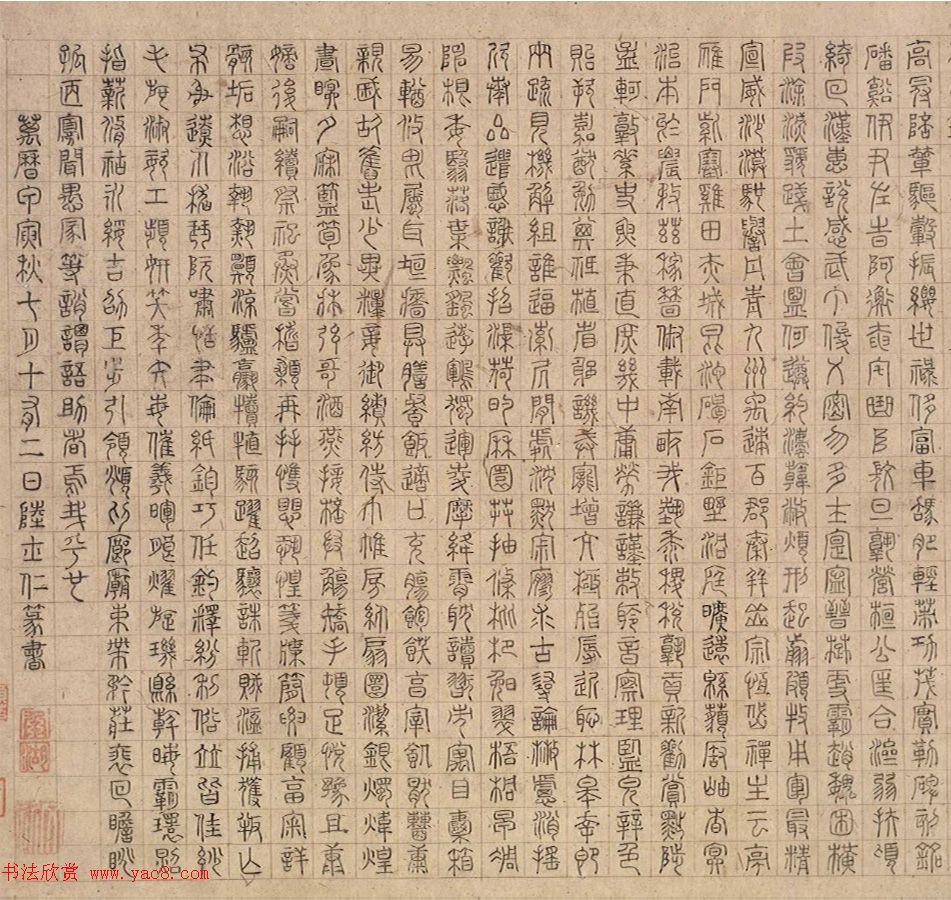 高冠陪輦驅轂振纓世祿侈富車駕肥輕策功茂實勒碑刻銘
磻溪伊尹佐時阿衡奄宅曲阜微旦孰營桓公匡合濟弱扶傾
綺回漢惠說感武丁俊乂密勿多士寔寧晉楚更霸趙魏困橫
假途滅虢踐土會盟何遵約法韓弊煩刑起翦頗牧用軍最精
宣威沙漠馳譽丹青九州禹跡百郡秦并岳宗恆岱禪主云亭
雁門紫塞雞田赤城昆池碣石鉅野洞庭曠遠綿邈巖岫杳冥
治本於農務茲稼穡俶載南畝我藝黍稷稅熟貢新勸賞黜陟
孟軻敦素史魚秉直庶幾中庸勞謙謹敕聆音察理鑑貌辨色
貽厥嘉猷勉其祗植省躬譏誡寵增抗極殆辱近恥林皋幸即
兩疏見機解組誰逼索居閒處沉默寂寥求古尋論散慮逍遙
欣奏累遣慼謝歡招渠荷的歷園莽抽條枇杷晚翠梧桐早凋
陳根委翳落葉飄颻遊鵾獨運凌摩絳霄耽讀玩市寓目囊箱
易輶攸畏屬耳垣牆具膳餐飯適口充腸飽飫烹宰飢厭糟糠
親戚故舊老少異糧妾御績紡侍巾帷房紈扇圓潔銀燭煒煌
晝眠夕寐藍筍象床弦歌酒宴接杯舉觴矯手頓足悅豫且康
嫡後嗣續祭祀蒸嘗稽顙再拜悚懼恐惶箋牒簡要顧答審詳
骸垢想浴執熱願涼驢騾犢特駭躍超驤誅斬賊盜捕獲叛亡
布射遼丸嵇琴阮嘯恬筆倫紙鈞巧任釣釋紛利俗並皆佳妙
毛施淑姿工顰妍笑年矢每催曦暉朗曜璇璣懸斡晦魄環照
指薪修祜永綏吉劭矩步引領俯仰廊廟束帶矜莊徘徊瞻眺
孤陋寡聞愚蒙等誚謂語助者焉哉乎也
萬曆甲寅秋七月十有二日陸士仁篆書
书法欣赏 www.yac8.com